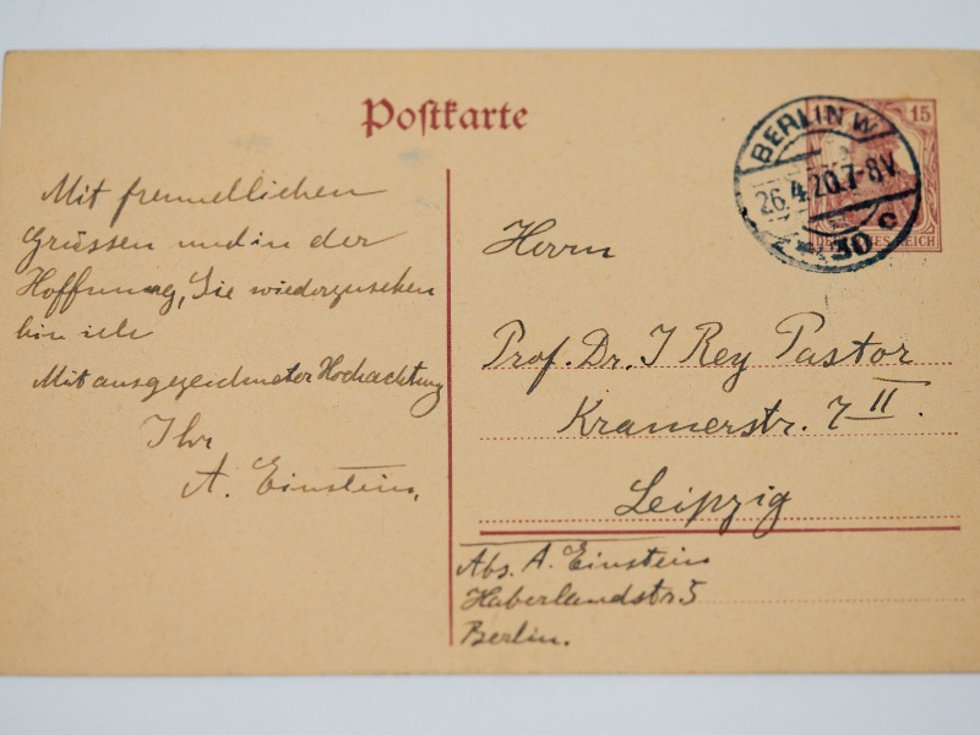 Postkarte
BERLIN W
26.4.20.7-8V.
30 c
15
DEUTSCHES REICH
Mit freundlichen
Grüssen und in der
Hoffnung, Sie wiederzusehen
bin ich
Mit ausgezeichneter Hochachtung
Ihr
A. Einstein.
Herrn
Prof. Dr. J Rey Pastor
Kramerstr. 7 II.
Leipzig
Abs. A. Einstein
Haberlandstr. 5
Berlin.